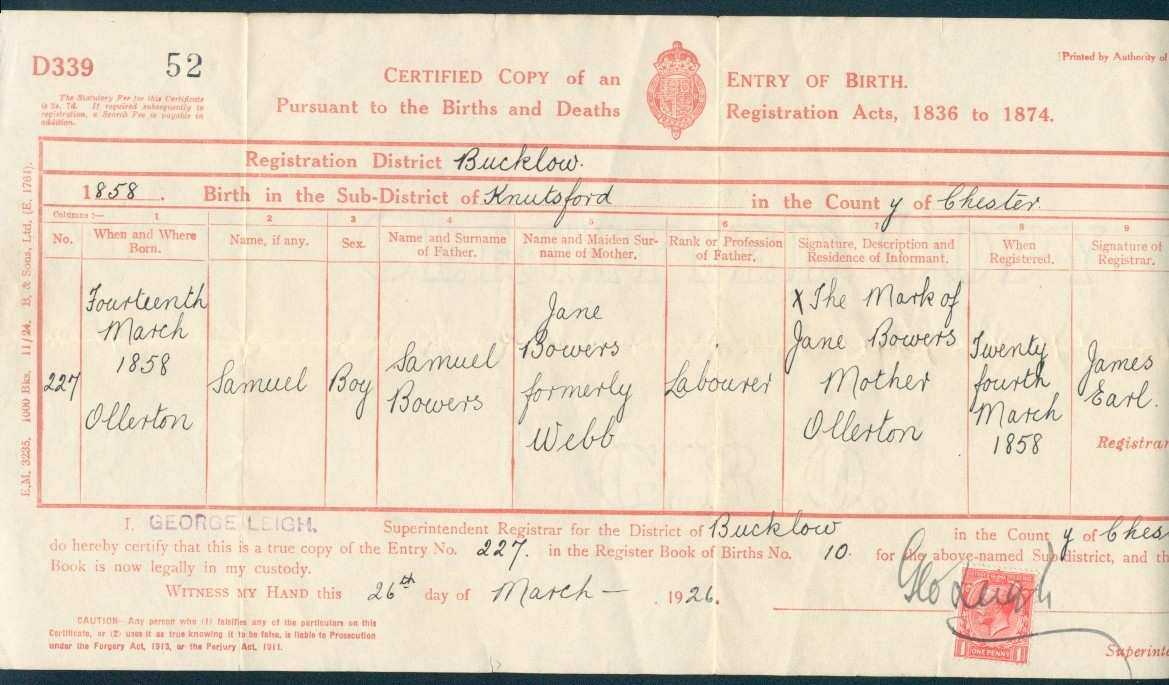 D339 52
[Printed by Authority of
The Statutory Fee for this Certificate
is 2s. 7d. If required subsequently to
registration, a Search Fee is payable in
addition.
CERTIFIED COPY of an ENTRY OF BIRTH.
Pursuant to the Births and Deaths Registration Acts, 1836 to 1874.
Registration District Bucklow.
1858. Birth in the Sub-District of Knutsford in the County of Chester.
Columns :— 1 2 3 4 5 6 7 8 9
No. When and Where Born. Name, if any. Sex. Name and Surname of Father. Name and Maiden Surname of Mother. Rank or Profession of Father. Signature, Description and Residence of Informant. When Registered. Signature of Registrar.
227
Fourteenth
March
1858
Ollerton
Samuel
Boy
Samuel
Bowers
Jane
Bowers
formerly
Webb
Labourer
X The Mark of
Jane Bowers
Mother
Ollerton
Twenty
fourth
March
1858
James
Earl.
Registrar
I, GEORGE LEIGH, Superintendent Registrar for the District of Bucklow in the County of Ches
do hereby certify that this is a true copy of the Entry No. 227. in the Register Book of Births No. 10. for the above-named Sub-district, and th
Book is now legally in my custody.
WITNESS MY HAND this 26th day of March – 1926.
Geo Leigh
ONE PENNY
Superinte
CAUTION— Any person who (1) falsifies any of the particulars on this
Certificate, or (2) uses it as true knowing it to be false, is liable to Prosecution
under the Forgery Act, 1913, or the Perjury Act, 1911.
E.M. 3235. 1000 Bks. 11/24. B. & Sons, Ltd. (E. 1761).